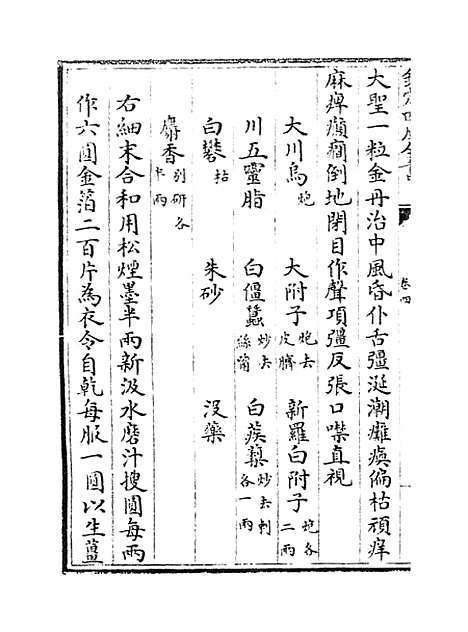 欽定四庫全書
卷四
大聖一粒金丹治中風昏仆舌彊涎潮癱瘓偏枯頑痒
麻痺癲癎倒地閉目作聲項彊反張口噤直視
大川烏炮 大附子炮去皮臍 新羅白附子炮各二兩
川五靈脂 白僵蠶炒去絲觜 白蒺藜炒去刺各一兩
白礬枯 朱砂 沒藥
麝香别研各半兩
右細末合和用松煙墨半兩新汲水磨汁搜圓每兩
作六圓金箔二百片為衣令自乾每服一圓以生薑